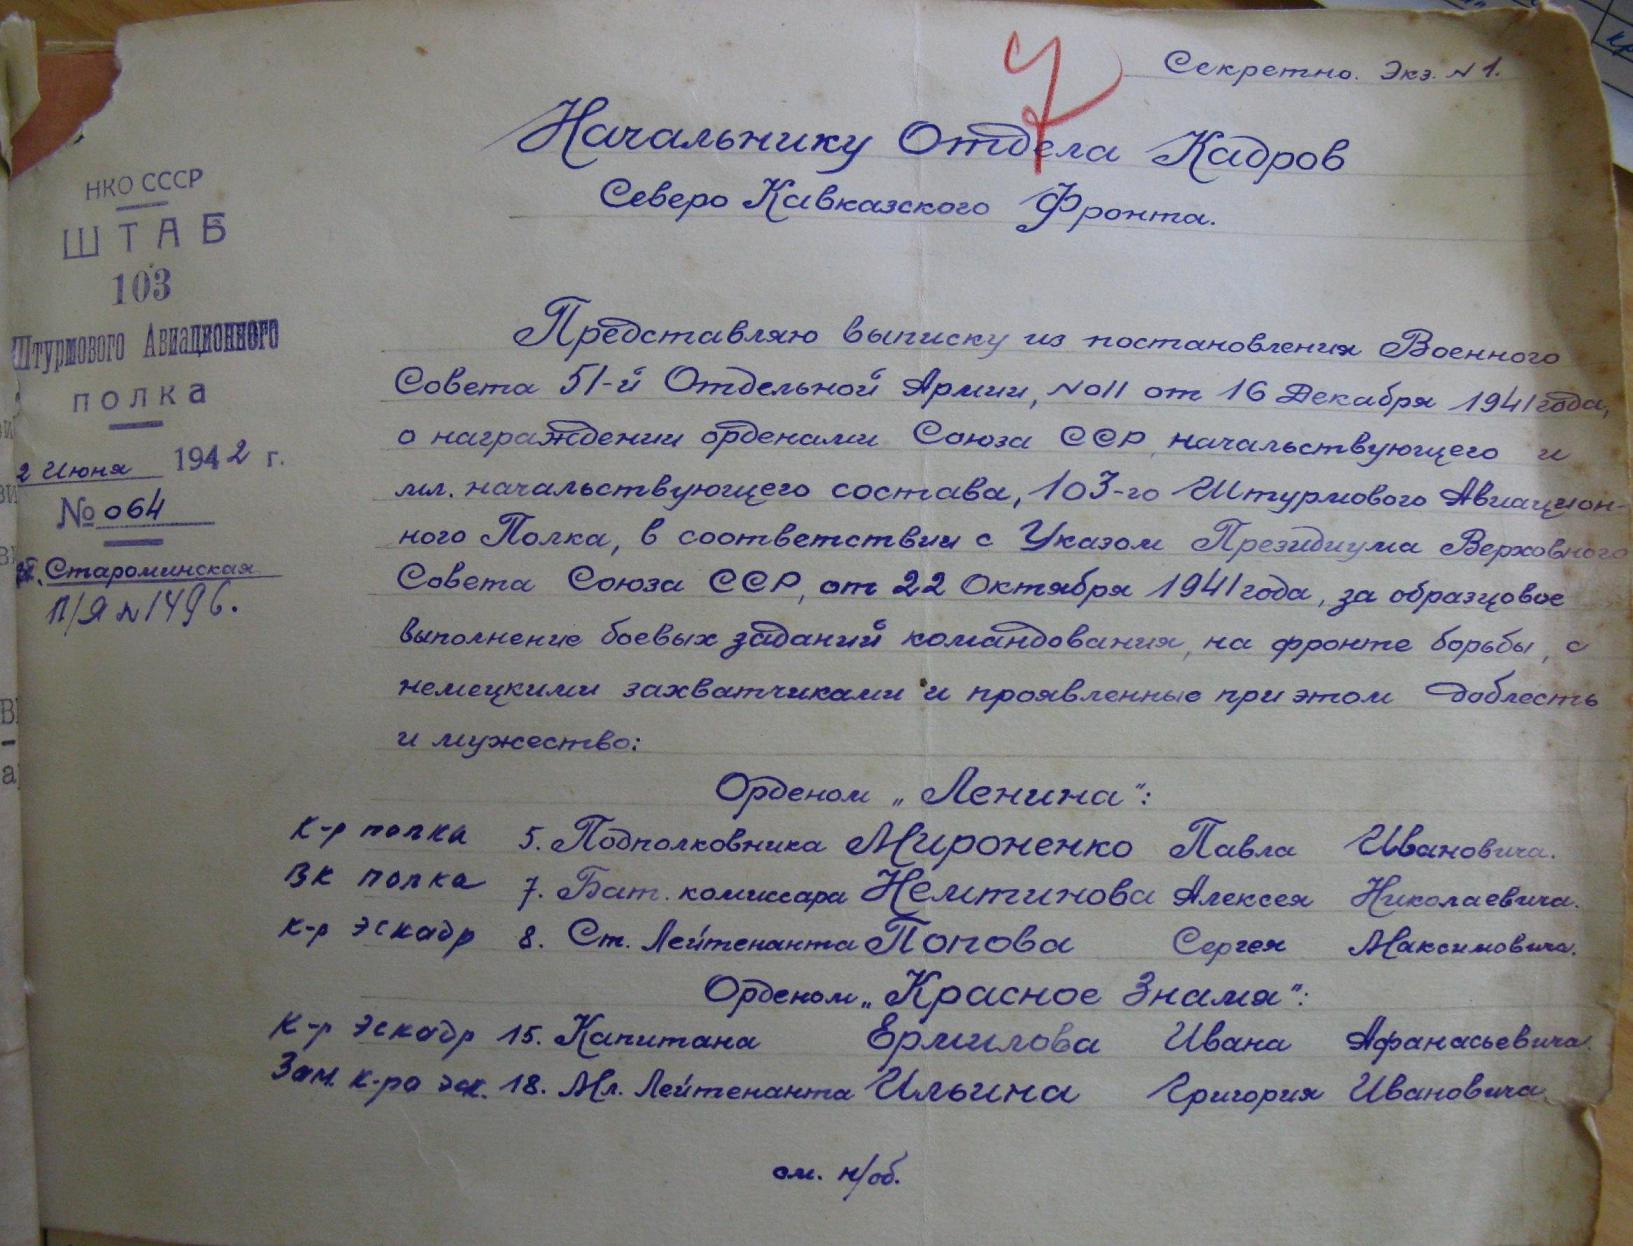 Секретно. Экз. №1.
Начальнику Отдела Кадров
Северо Кавказского Фронта.
НКО СССР
ШТАБ
103
Штурмового Авиационного
ПОЛКА
2 Июня 1942 г.
№ 064
ст. Староминская
П/Я №1496.
Представляю выписку из постановления Военного
Совета 51-й Отдельной Армии, №011 от 16 Декабря 1941 года,
о награждении орденами Союза ССР, начальствующего и
мл. начальствующего состава, 103-го Штурмового Авиацион-
ного Полка, в соответствии с Указом Президиума Верховного
Совета Союза ССР, от 22 Октября 1941 года, за образцовое
выполнение боевых заданий командования, на фронте борьбы, с
немецкими захватчиками и проявленные при этом доблесть
и мужество:
Орденом „Ленина":
К-р полка 5. Подполковника Мироненко Павла Ивановича.
ВК полка 7. Бат. комиссара Немтинова Алексея Николаевича.
К-р эскадр 8. Ст. Лейтенанта Попова Сергея Максимовича.
Орденом „Красное Знамя":
К-р эскадр 15. Капитана Ермилова Ивана Афанасьевича.
Зам. к-ра эск. 18. Мл. Лейтенанта Ильина Григория Ивановича
см. н/об.